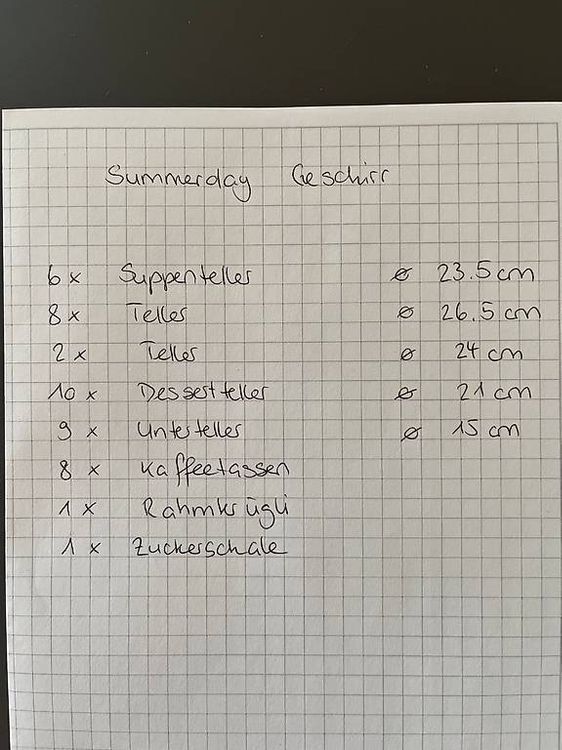 Summerday Geschirr
6 x Suppenteller ø 23.5 cm
8 x Teller ø 26.5 cm
2 x Teller ø 24 cm
10 x Dessertteller ø 21 cm
9 x Unterteller ø 15 cm
8 x Kaffeetassen
1 x Rahmkrügli
1 x Zuckerschale